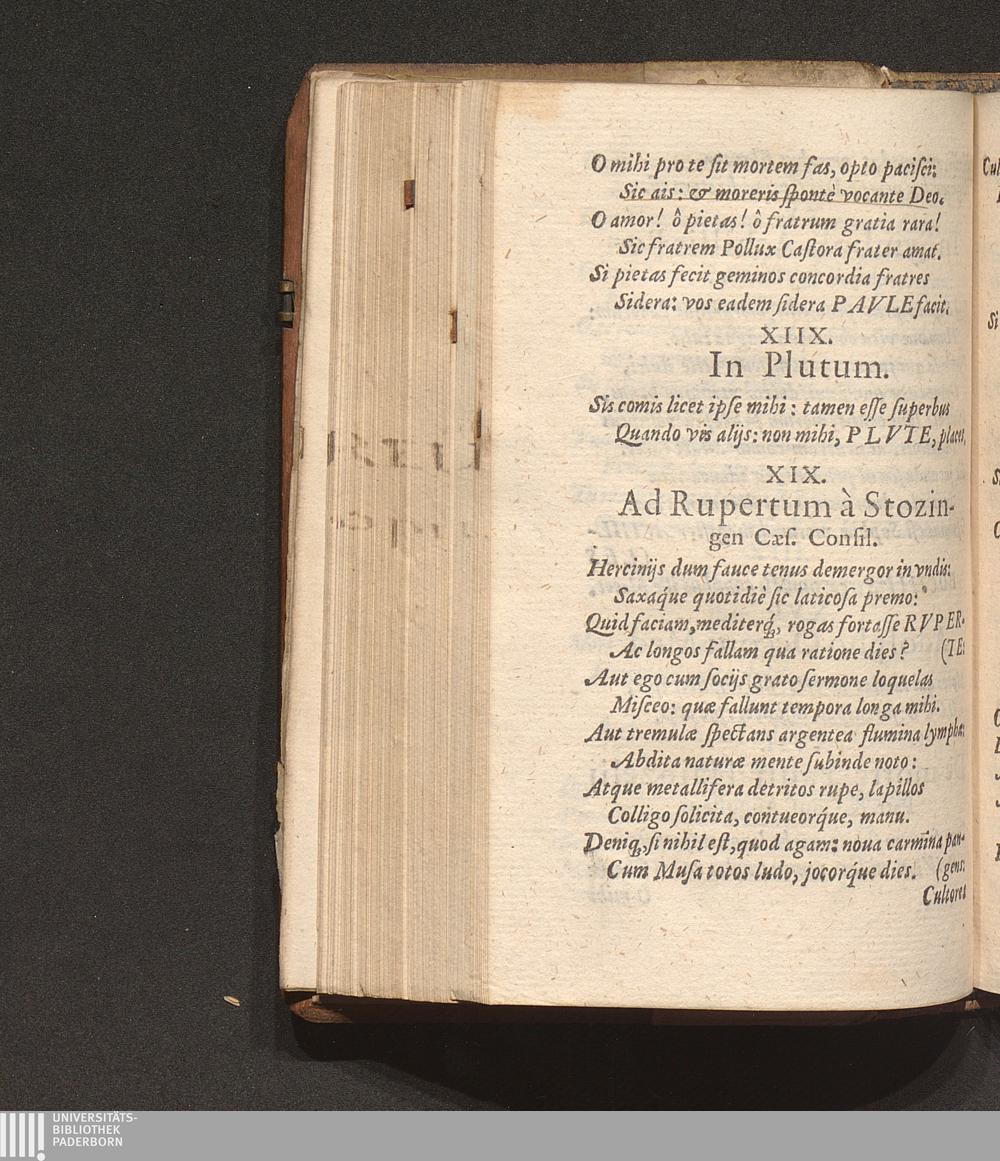 O mihi pro te ſit mortem fas, opto paciſci:
Sic ais: & moreris ſpontè vocante Deo.
O amor! ô pietas! ô fratrum gratia rara!
Sic fratrem Pollux Caſtora frater amat.
Si pietas fecit geminos concordia fratres
Sidera: vos eadem ſidera PAVLE facit.
XIIX.
In Plutum.
Sis comis licet ipſe mihi: tamen eſſe ſuperbus
Quando vis alijs: non mihi, PLVTE, places.
XIX.
Ad Rupertum à Stozin-
gen Cæſ. Conſil.
Hercinijs dum fauce tenus demergor in vndis:
Saxaq́ue quotidiè ſic laticoſa premo:
Quid faciam, mediterq́, rogas fortaſſe RVPER-
Ac longos fallam qua ratione dies? (TE:
Aut ego cum ſocijs grato ſermone loquelas
Miſceo: quæ fallunt tempora longa mihi.
Aut tremulæ ſpectans argentea flumina lymphæ:
Abdita naturæ mente ſubinde noto:
Atque metallifera detritos rupe, lapillos
Colligo ſolicita, contueorq́ue, manu.
Deniq, ſi nihil eſt, quod agam: noua carmina pan-
Cum Muſa totos ludo, jocorq́ue dies. (gens:
Cultores
UNIVERSITÄTS-
BIBLIOTHEK
PADERBORN